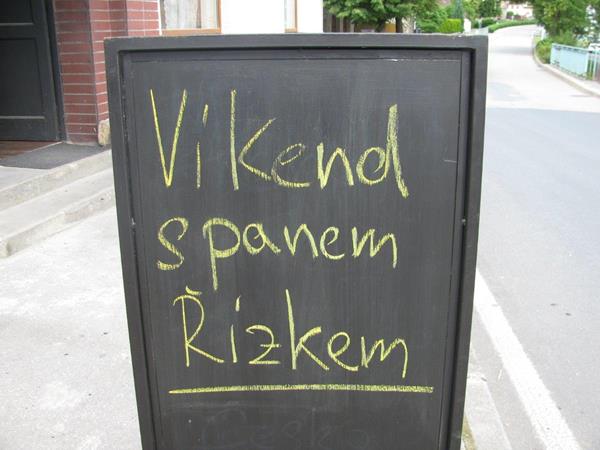 Víkend
s panem
Řízkem